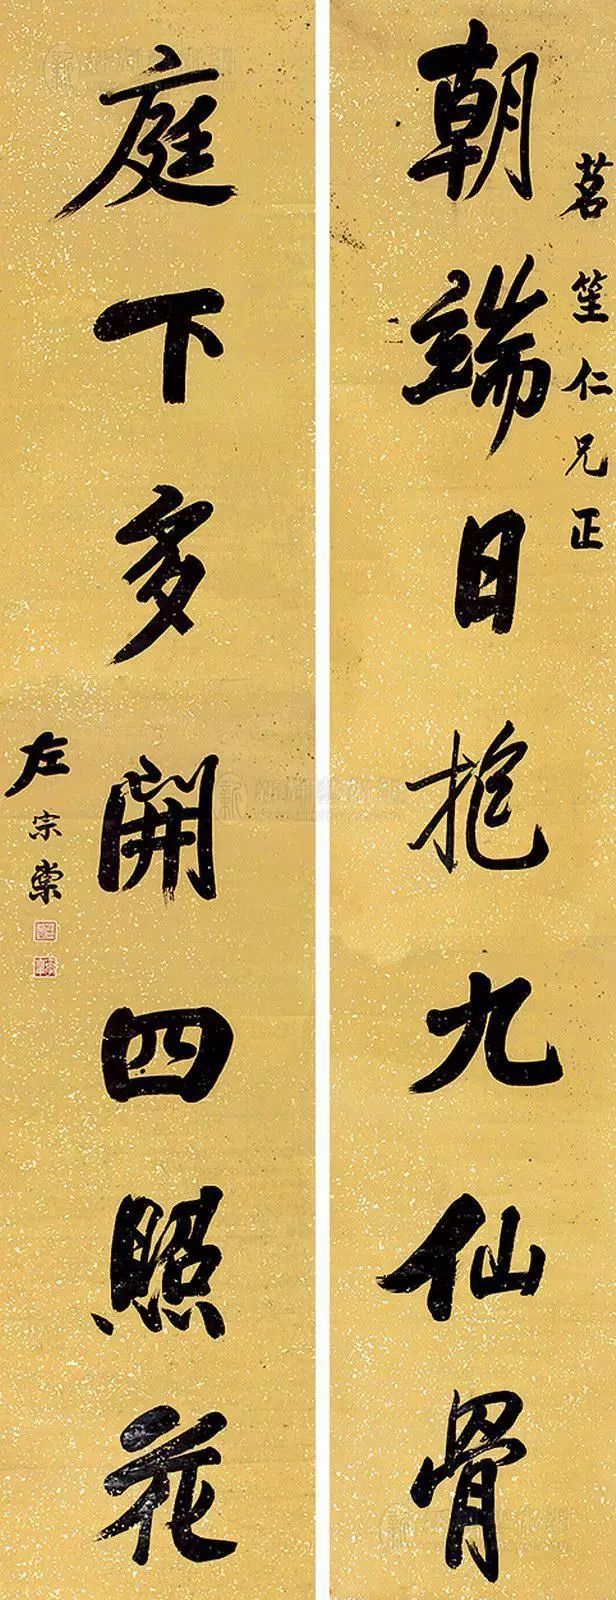 茗笙仁兄正
朝端日抱九仙骨
庭下多開四照花
左宗棠